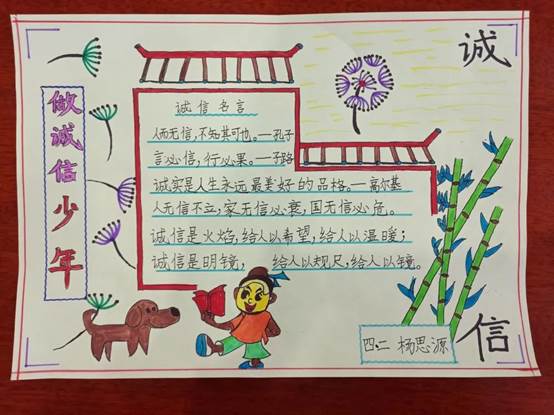 诚
信
做诚信少年
诚信名言
人而无信,不知其可也。—孔子
言必信,行必果。—子路
诚实是人生永远最美好的品格。—高尔基
人无信不立,家无信必衰,国无信必危。
诚信是火焰,给人以希望,给人以温暖;
诚信是明镜, 给人以规尺,给人以镜。
四.二 杨思源